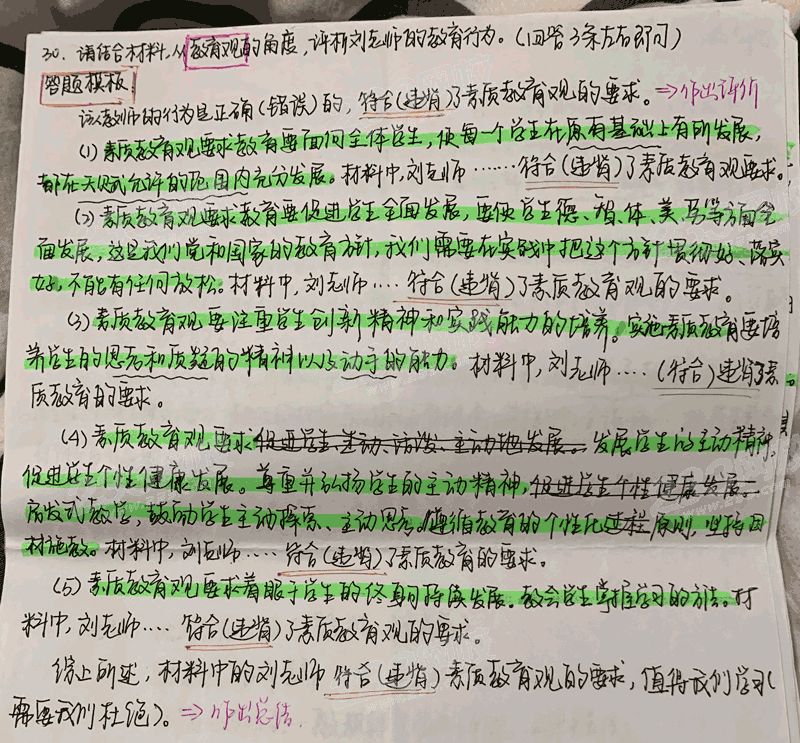 30. 请结合材料,从教育观的角度,评析刘老师的教育行为。(回答3条左右即可)
答题模板:
该教师的行为是正确(错误)的,符合(违背)了素质教育观的要求。⇒作出评价
(1) 素质教育观要求教育要面向全体学生,使每一个学生在原有基础上有所发展,
都在天赋允许的范围内充分发展。材料中,刘老师……符合(违背)了素质教育观要求。
(2) 素质教育观要求教育要促进学生全面发展,要使学生德、智、体、美、劳等方面全
面发展,这是我们党和国家的教育方针,我们需要在实践中把这个方针贯彻好、落实
好,不能有任何放松。材料中,刘老师…. 符合(违背)了素质教育观的要求。
(3) 素质教育观要注重学生创新精神和实践能力的培养。实施素质教育要培
养学生的思考和质疑的精神以及动手的能力。材料中,刘老师….(符合)违背了素
质教育的要求。
(4) 素质教育观要求促进学生生动、活泼、主动地发展。发展学生的主动精神,
促进学生个性健康发展。尊重并弘扬学生的主动精神,促进学生个性健康发展。
启发式教学,鼓励学生主动探索、主动思考。遵循教育的个性化过程原则,坚持因
材施教。材料中,刘老师…. 符合(违背)了素质教育的要求。
(5) 素质教育观要求着眼于学生的终身可持续发展。教会学生掌握学习的方法。材
料中,刘老师…. 符合(违背)了素质教育观的要求。
综上所述,材料中的刘老师 符合(违背)素质教育观的要求,值得我们学习(
需要我们杜绝)。⇒作出总结.